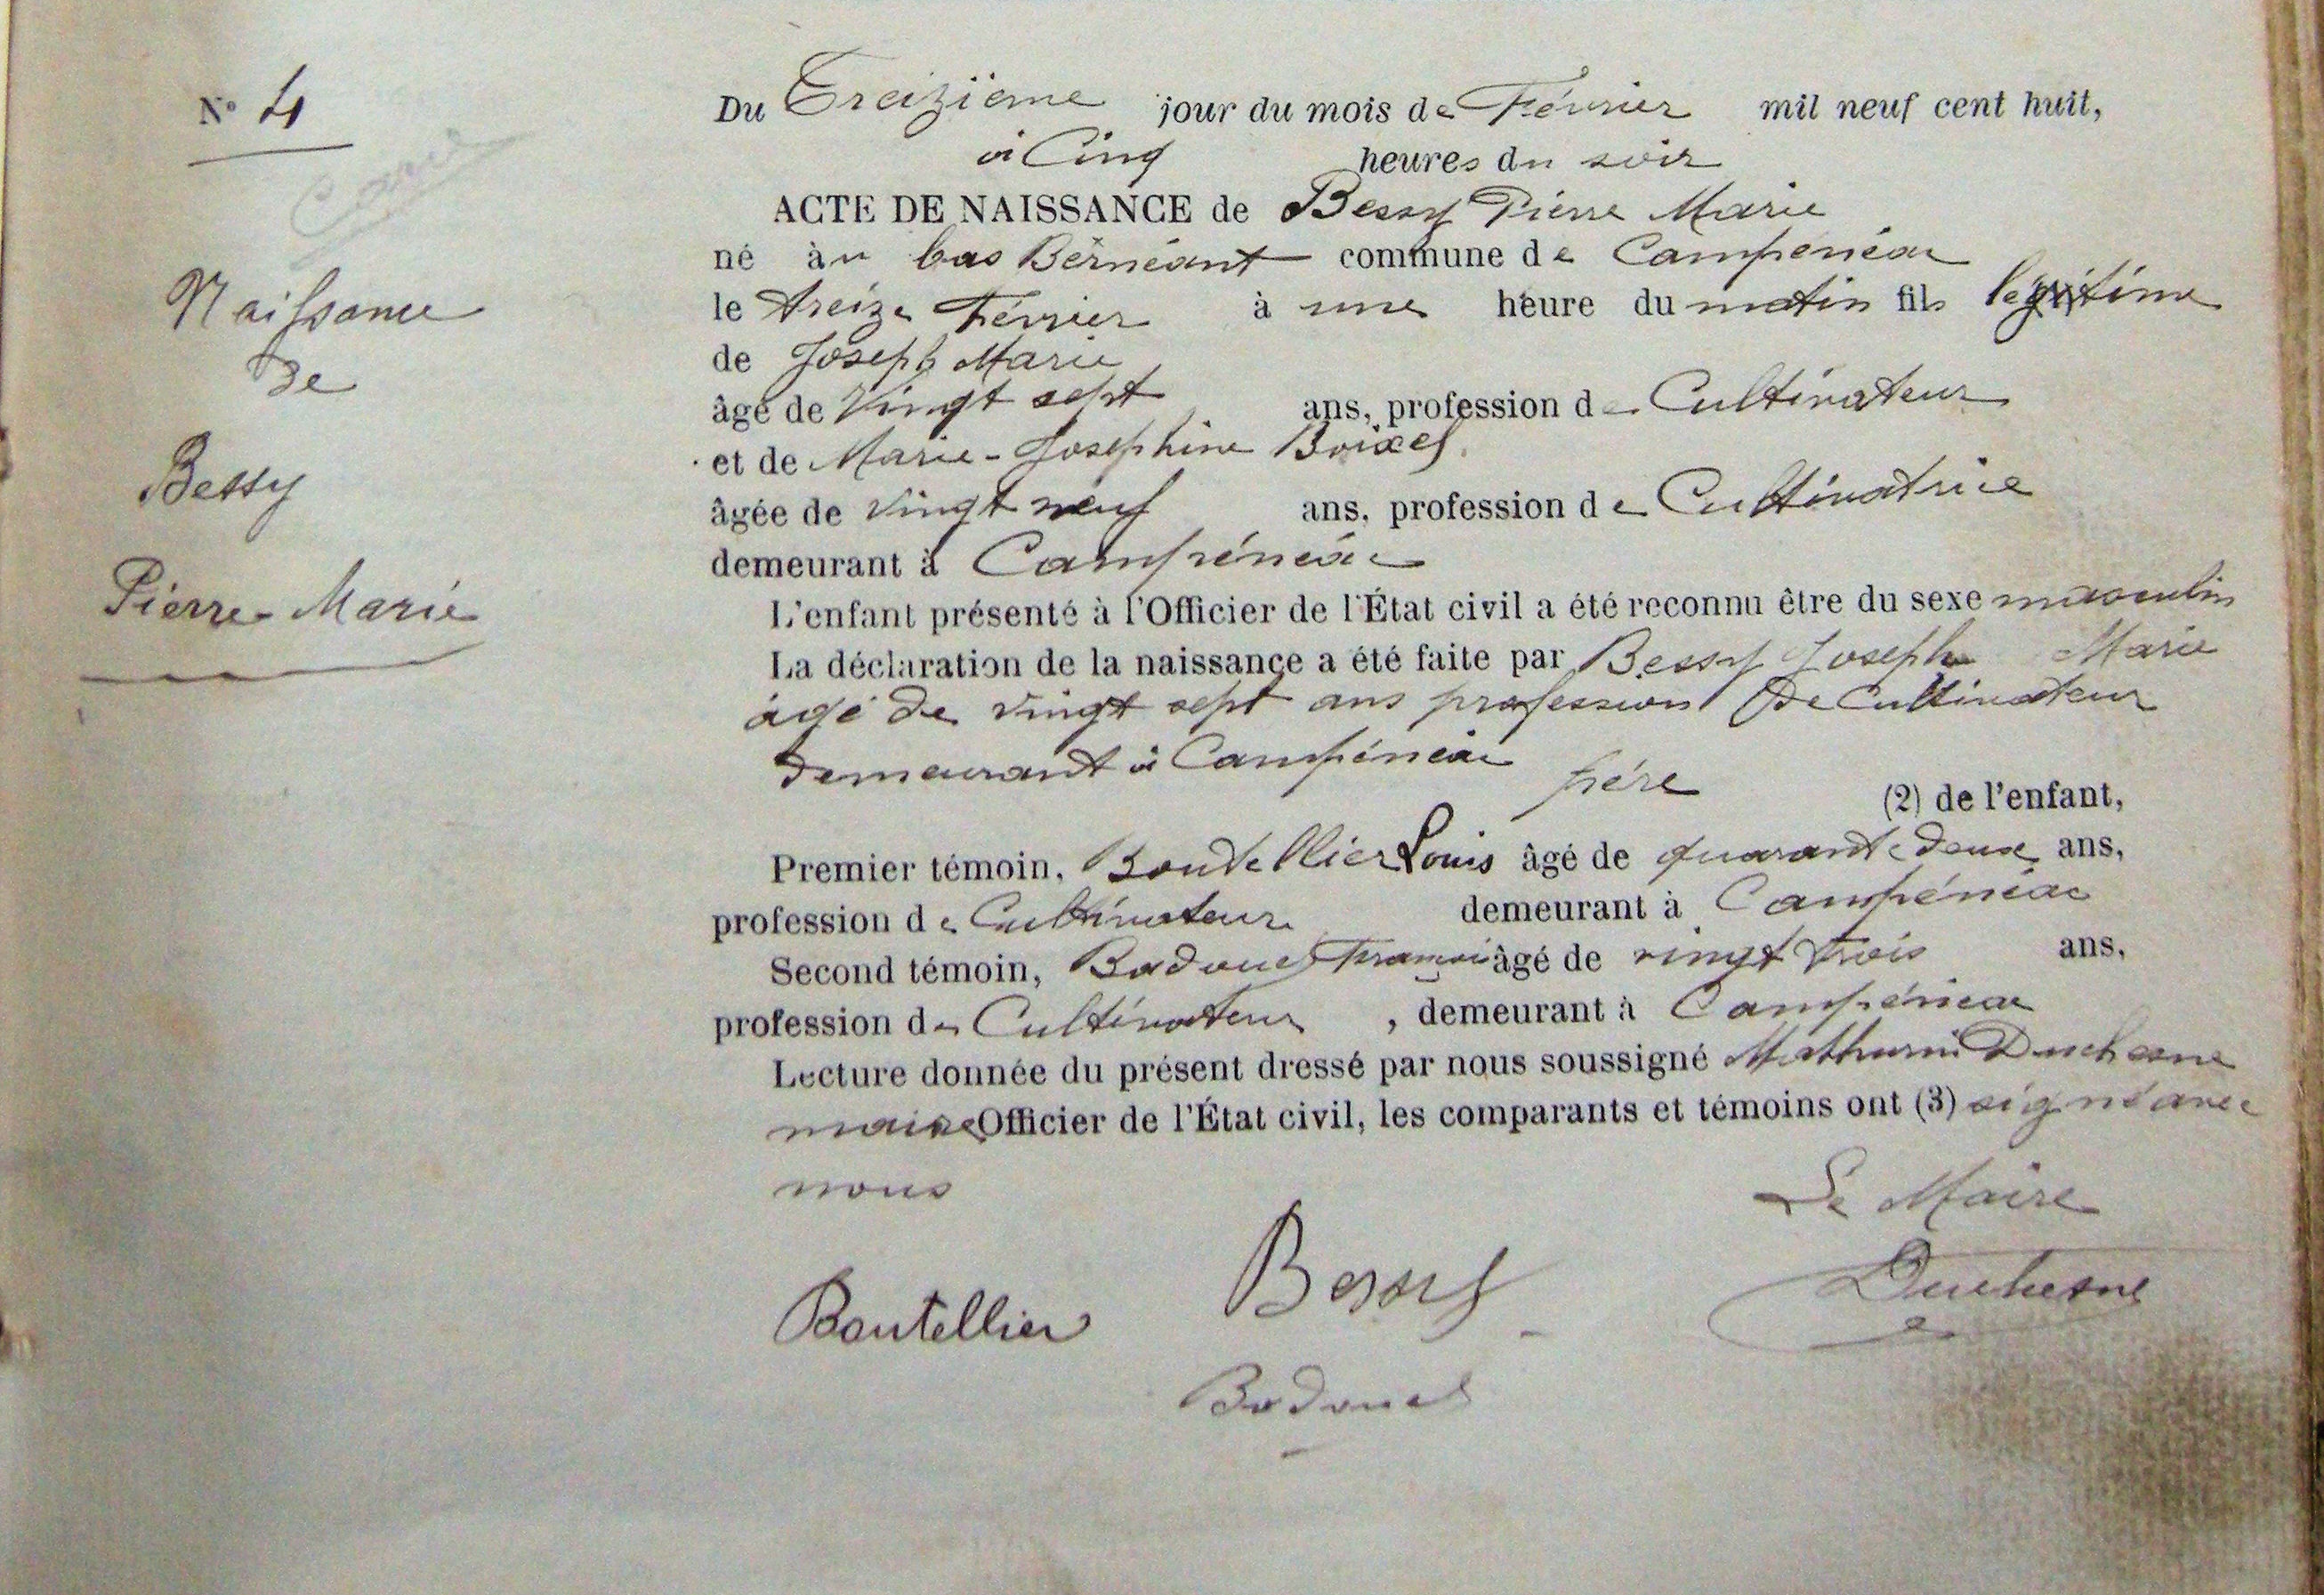 N° 4
Naissance
de
Bessy
Pierre Marie
Du Treizième jour du mois de Février mil neuf cent huit,
à Cinq heures du soir
ACTE DE NAISSANCE de Bessy Pierre Marie
né au bas Bernéant commune de Campénéac
le treize Février à une heure du matin fils légitime
de Joseph Marie
âgé de Vingt sept ans, profession de Cultivateur
et de Marie-Joséphine Boixel
âgée de vingt neuf ans, profession de Cultivatrice
demeurant à Campénéac
L'enfant présenté à l'Officier de l'État civil a été reconnu être du sexe masculin
La déclaration de la naissance a été faite par Bessy Joseph Marie
âgé de vingt sept ans profession de Cultivateur
demeurant à Campénéac
père (2) de l'enfant,
Premier témoin, Boutellier Louis âgé de quarante deux ans,
profession de Cultivateur demeurant à Campénéac
Second témoin, Badouel François âgé de vingt trois ans,
profession de Cultivateur, demeurant à Campénéac
Lecture donnée du présent dressé par nous soussigné Mathurin Duchesne
maire Officier de l'État civil, les comparants et témoins ont (3) signé avec
nous
Le Maire
Boutellier Bessy Duchesne
Badouel